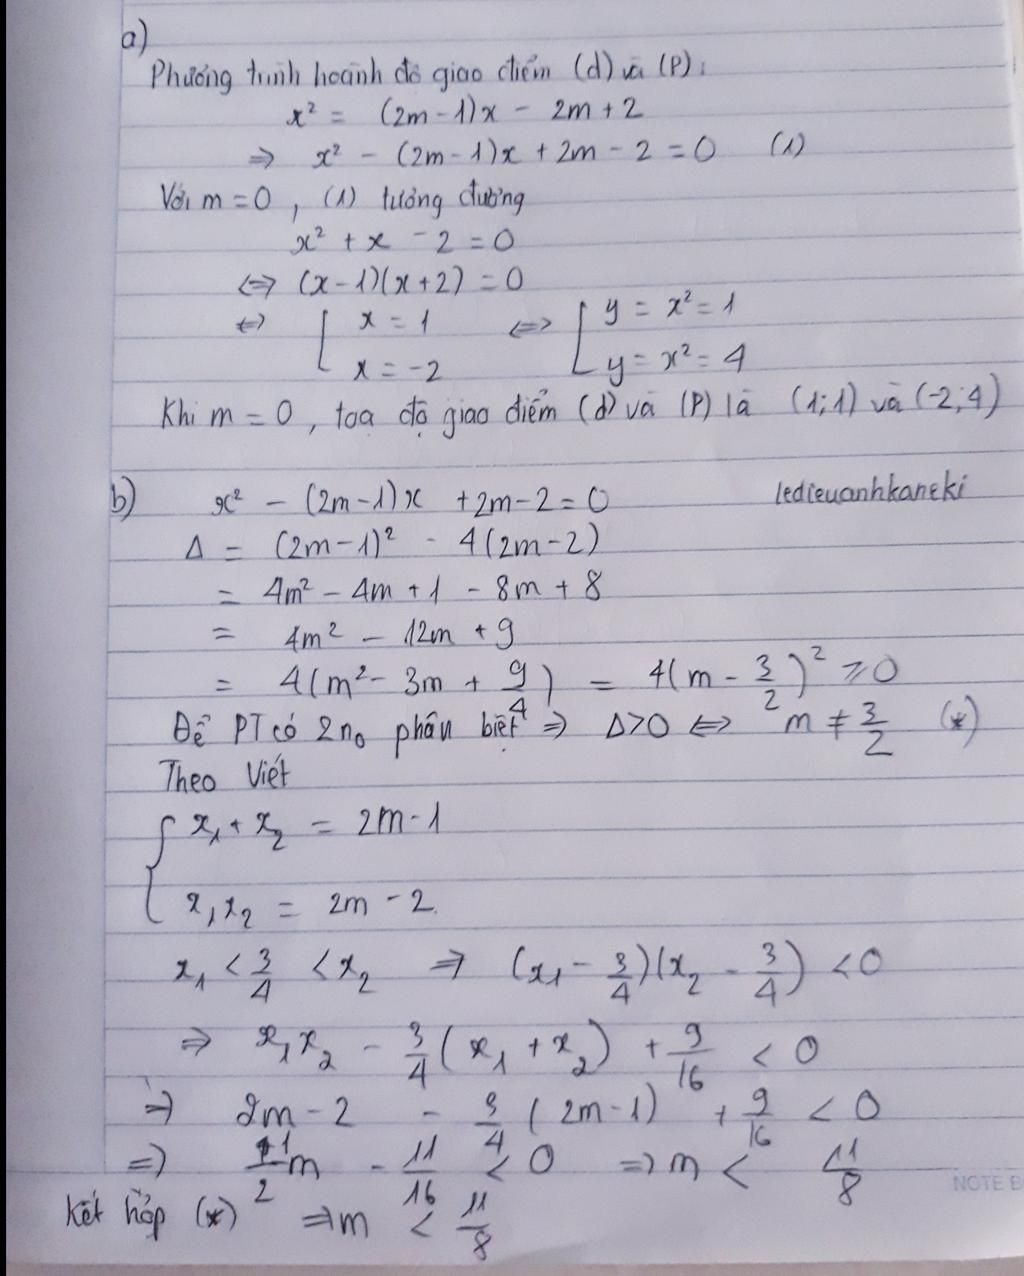 a)
Phương trình hoành độ giao điểm (d) và (P):
x² = (2m-1)x - 2m+2
⇒ x² - (2m-1)x + 2m - 2 = 0 (1)
Với m = 0, (1) tương đương
x² + x - 2 = 0
⇔ (x-1)(x+2) = 0
⇔ [ x = 1 ⇔ [ y = x² = 1
x = -2 y = x² = 4
Khi m = 0, tọa độ giao điểm (d) và (P) là (1;1) và (-2;4)
b) x² - (2m-1)x + 2m-2 = 0 ledieuanhkaneki
Δ = (2m-1)² - 4(2m-2)
= 4m² - 4m + 1 - 8m + 8
= 4m² - 12m + 9
= 4(m² - 3m + 9/4) = 4(m - 3/2)² ⩾ 0
Để PT có 2 n₀ phân biệt ⇒ Δ>0 ⇔ m ≠ 3/2 (*)
Theo Viét
{ x₁ + x₂ = 2m-1
x₁x₂ = 2m - 2.
x₁ < 3/4 < x₂ ⇒ (x₁ - 3/4)(x₂ - 3/4) < 0
⇒ x₁x₂ - 3/4 (x₁ + x₂) + 9/16 < 0
⇒ 2m - 2 - 3/4 (2m-1) + 9/16 < 0
⇒ 1/2 m - 11/16 < 0 ⇒ m < 11/8
Kết hợp (*) ⇒ m < 11/8
NOTE B